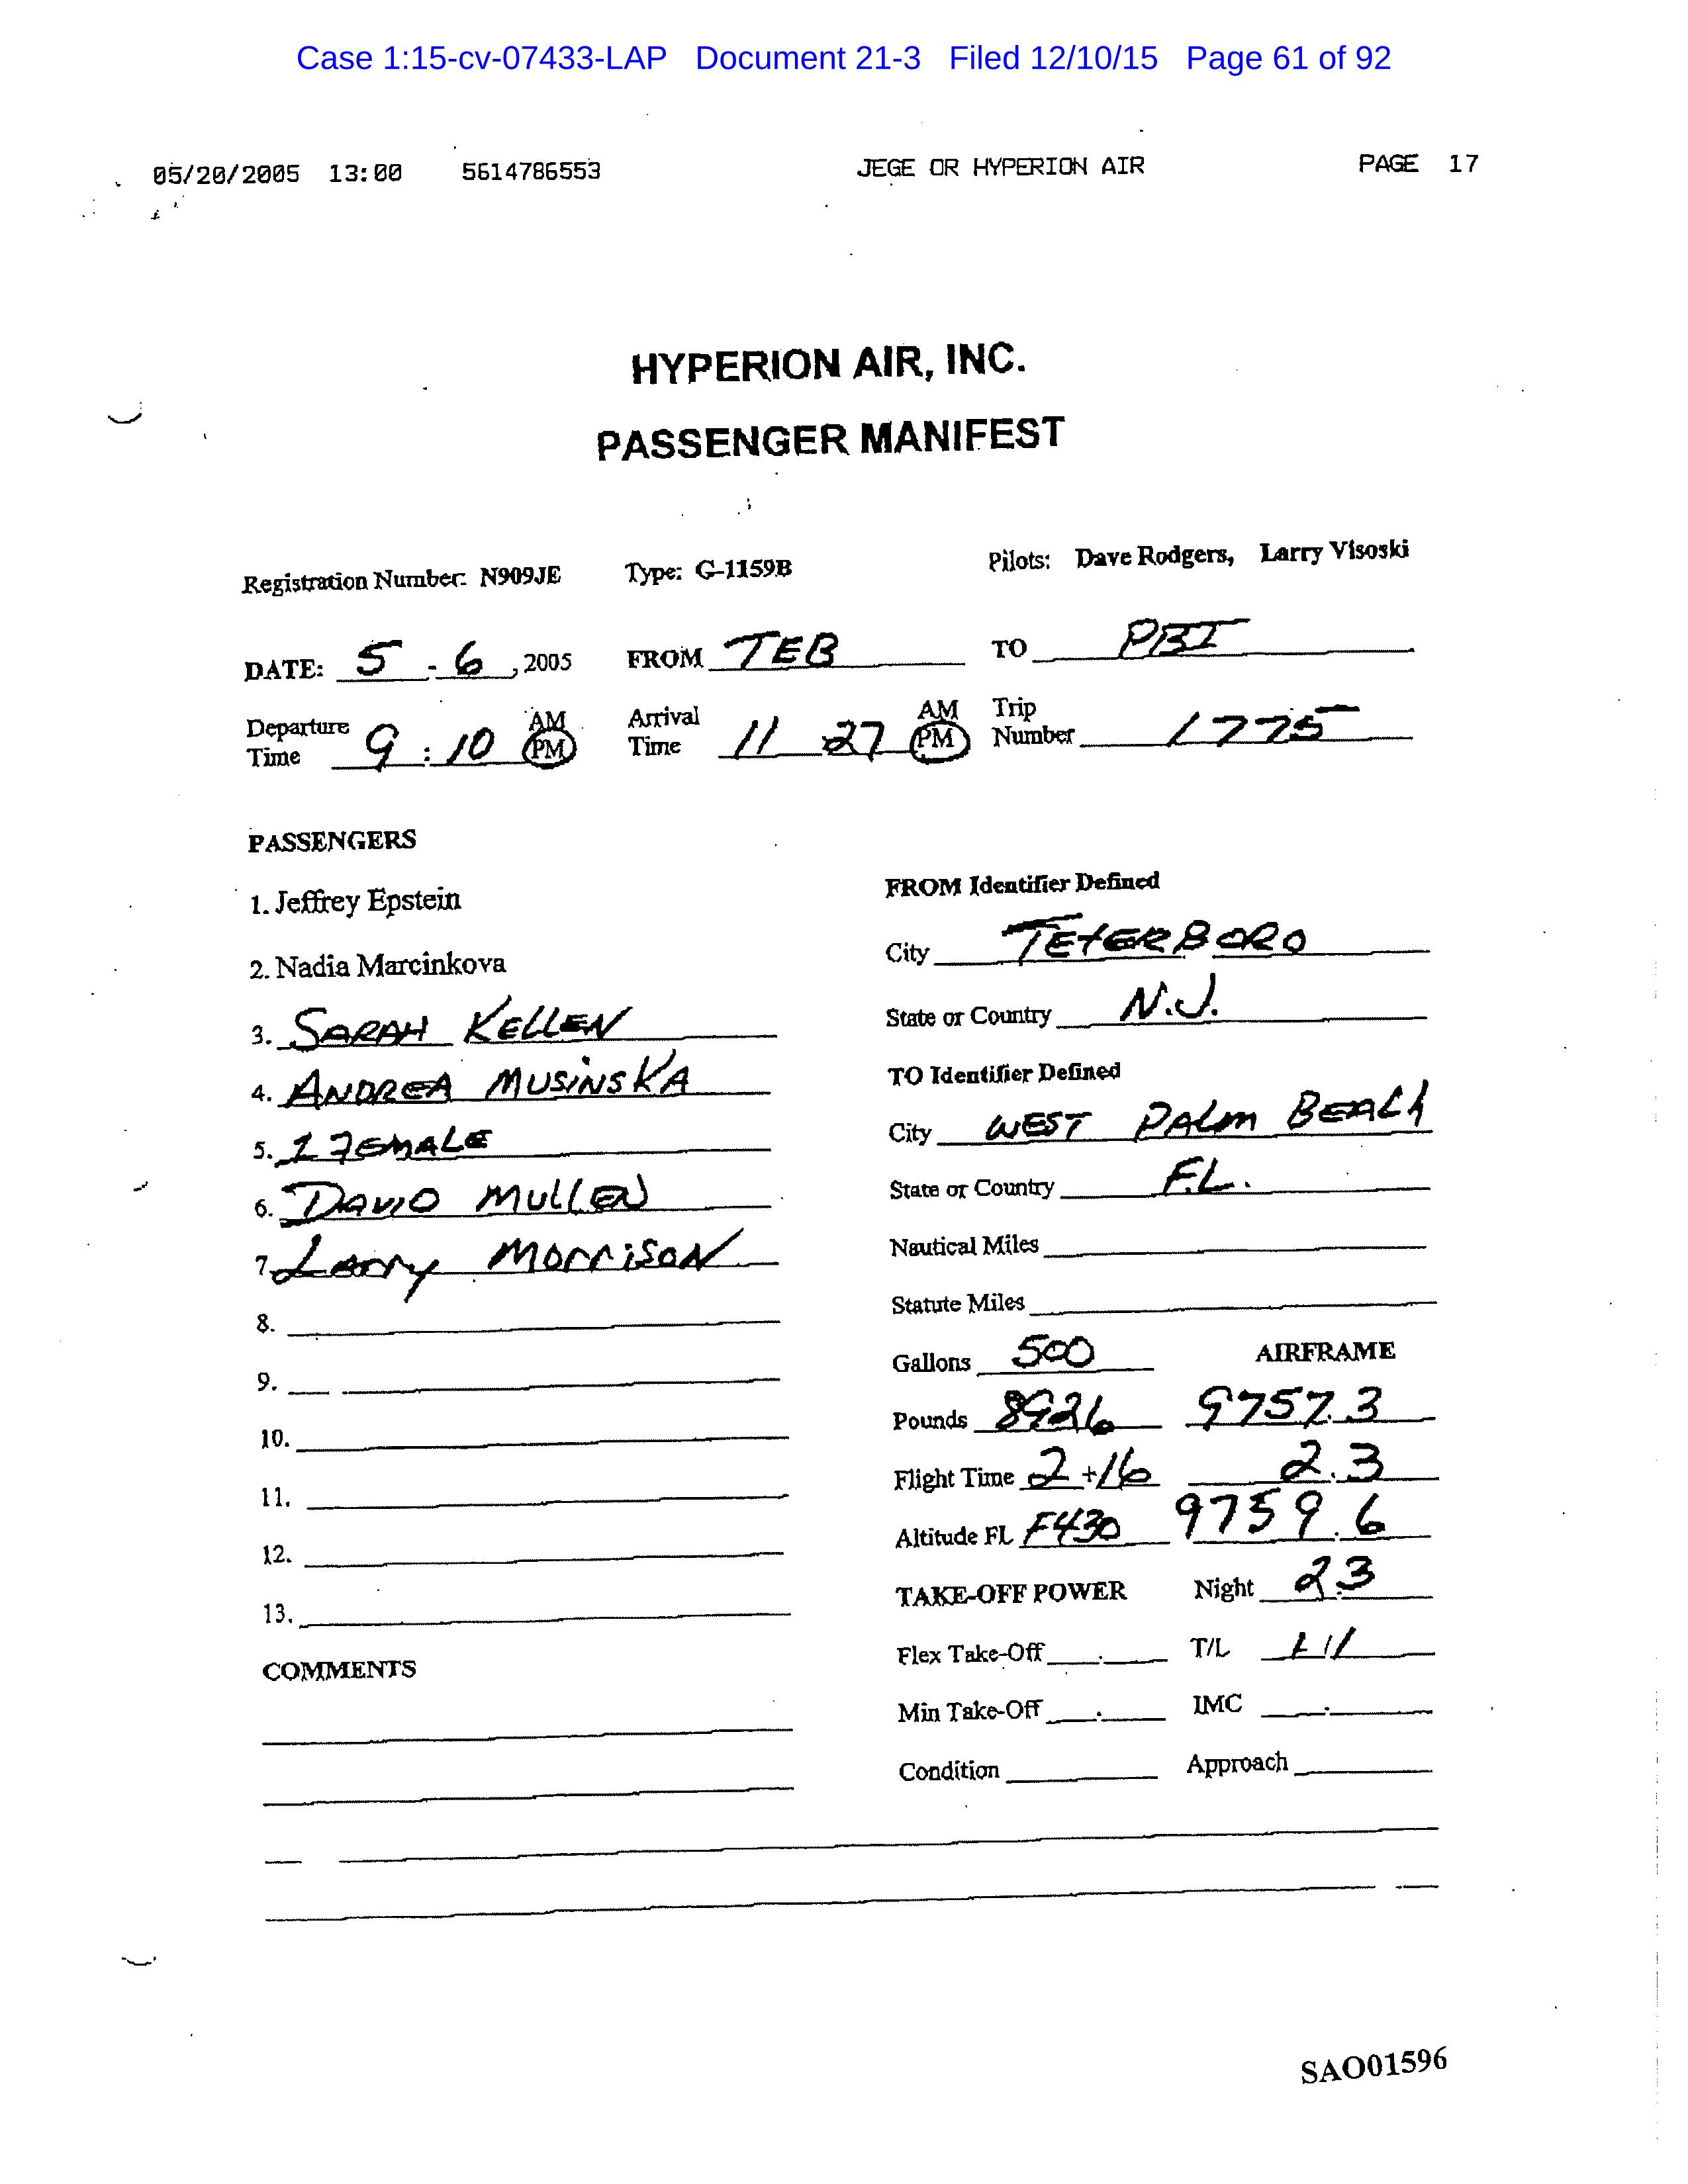 Case 1:15-cv-07433-LAP Document 21-3 Filed 12/10/15 Page 61 of 92
05/20/2005 13:00 5614786553 JEGE OR HYPERION AIR PAGE 17
HYPERION AIR, INC.
PASSENGER MANIFEST
Registration Number: N909JE Type: G-1159B Pilots: Dave Rodgers, Larry Visoski
DATE: 5 - 6, 2005 FROM TEB TO PBI
Departure Time 9:10 AM PM Arrival Time 11 27 AM PM Trip Number 1775
PASSENGERS
1. Jeffrey Epstein
2. Nadia Marcinkova
3. SARAH KELLEN
4. ANDREA MUSINSKA
5. 1 FEMALE
6. DAVID MULLEN
7. Larry MorrisoN
8.
9.
10.
11.
12.
13.
COMMENTS
FROM Identifier Defined
City TETERBORO
State or Country N.J.
TO Identifier Defined
City WEST PALM BEACH
State or Country F.L.
Nautical Miles
Statute Miles
Gallons 500 AIRFRAME
Pounds 8926 9757.3
Flight Time 2+16 2.3
Altitude FL F430 9759.6
TAKE-OFF POWER Night 2.3
Flex Take-Off T/L
Min Take-Off IMC
Condition Approach
SAO01596